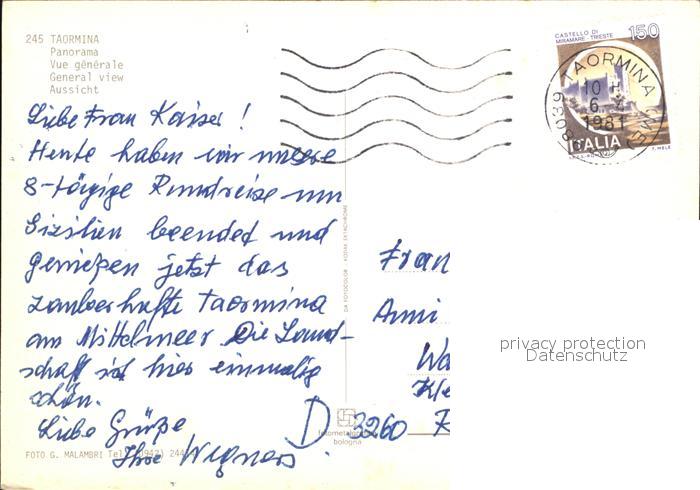 245 TAORMINA
Panorama
Vue générale
General view
Aussicht
Liebe Frau Kaiser!
Heute haben wir unsere
8-tägige Rundreise um
Sizilien beendet und
genießen jetzt das
zauberhafte Taormina
am Mittelmeer. Die Land-
schaft ist hier einmalig
schön.
Liebe Grüße
Ihre Wegners.
FOTO G. MALAMBRI Tel. (0942) 24
DA FOTOCOLOR - KODAK EKTACHROME
fotometal
bologna
CASTELLO DI
MIRAMARE - TRIESTE
150
ITALIA
98039 TAORMINA (ME)
10
6
1981
Frau
Anni
Wa
Kle
D 3260 R
privacy protection
Datenschutz